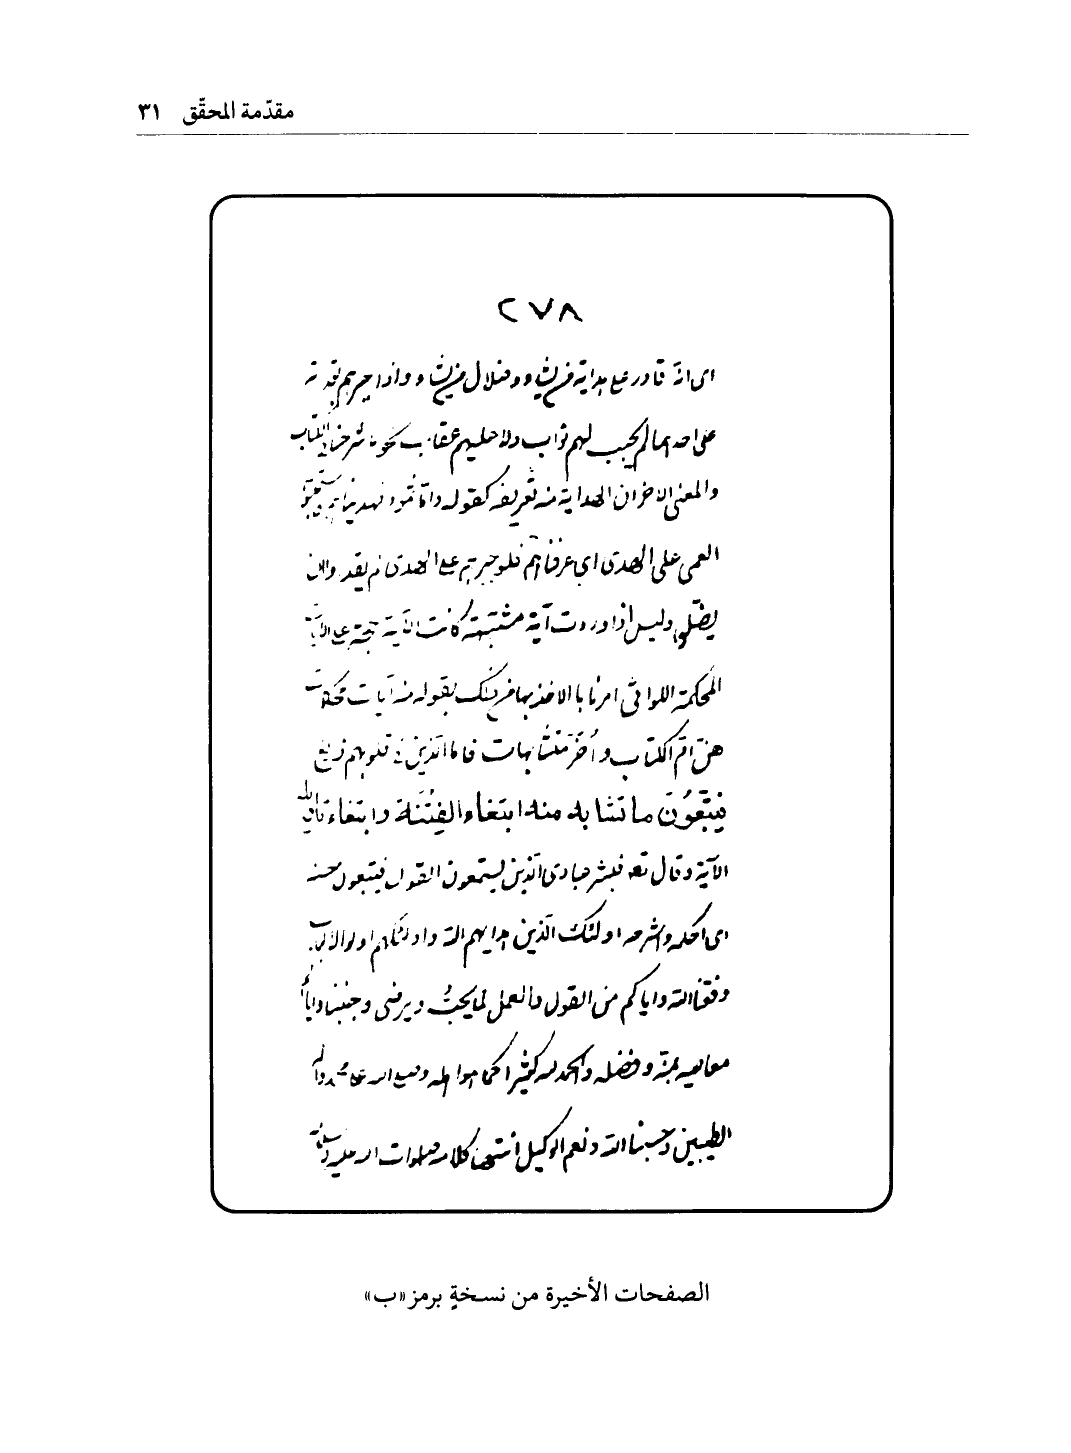 مقدّمة المحقّق ٣١
٢٧٨
اى انه قادر على هداية من يشاء وضلال من يشاء واذا اجبرهم بقدرته
على احدهما لم يجب لهم ثواب ولا عليهم عقاب على نحو ما شرحنا فى الكتاب
والمعنى الاخر ان الهداية منه تعريفه كقوله واما ثمود فهديناهم فاستحبوا
العمى على الهدى اى عرفناهم فلو جبرهم على الهدى لم يقدروا ان
يضلوا وليس اذا وردت آية مشتبهة كانت الآية حجة على الآيات
المحكمة اللواتى امرنا بالاخذ بها من ذلك بقوله منه آيات محكمات
هنّ امّ الكتاب وأُخَر متشابهات فاما الذين فى قلوبهم زيغ
فيتبعون ما تشابه منه ابتغاء الفتنة وابتغاء تأويله
الآية وقال تعه فبشر عبادى الذين يستمعون القول فيتبعون احسنه
اى احكمه واشرحه اولئك الذين هداهم الله واولئك هم اولوا الالباب
وفقنا الله واياكم من القول والعمل لما يحبُّ ويرضى وجنبنا واياكم
معاصيه بمنّه وفضله والحمد لله كثيرا كما هو اهله وصلى الله على محمد وآله
الطيبين وحسبنا الله ونعم الوكيل انتهى كلامه صلوات الله عليه
الصفحات الأخيرة من نسخةٍ برمز «ب»